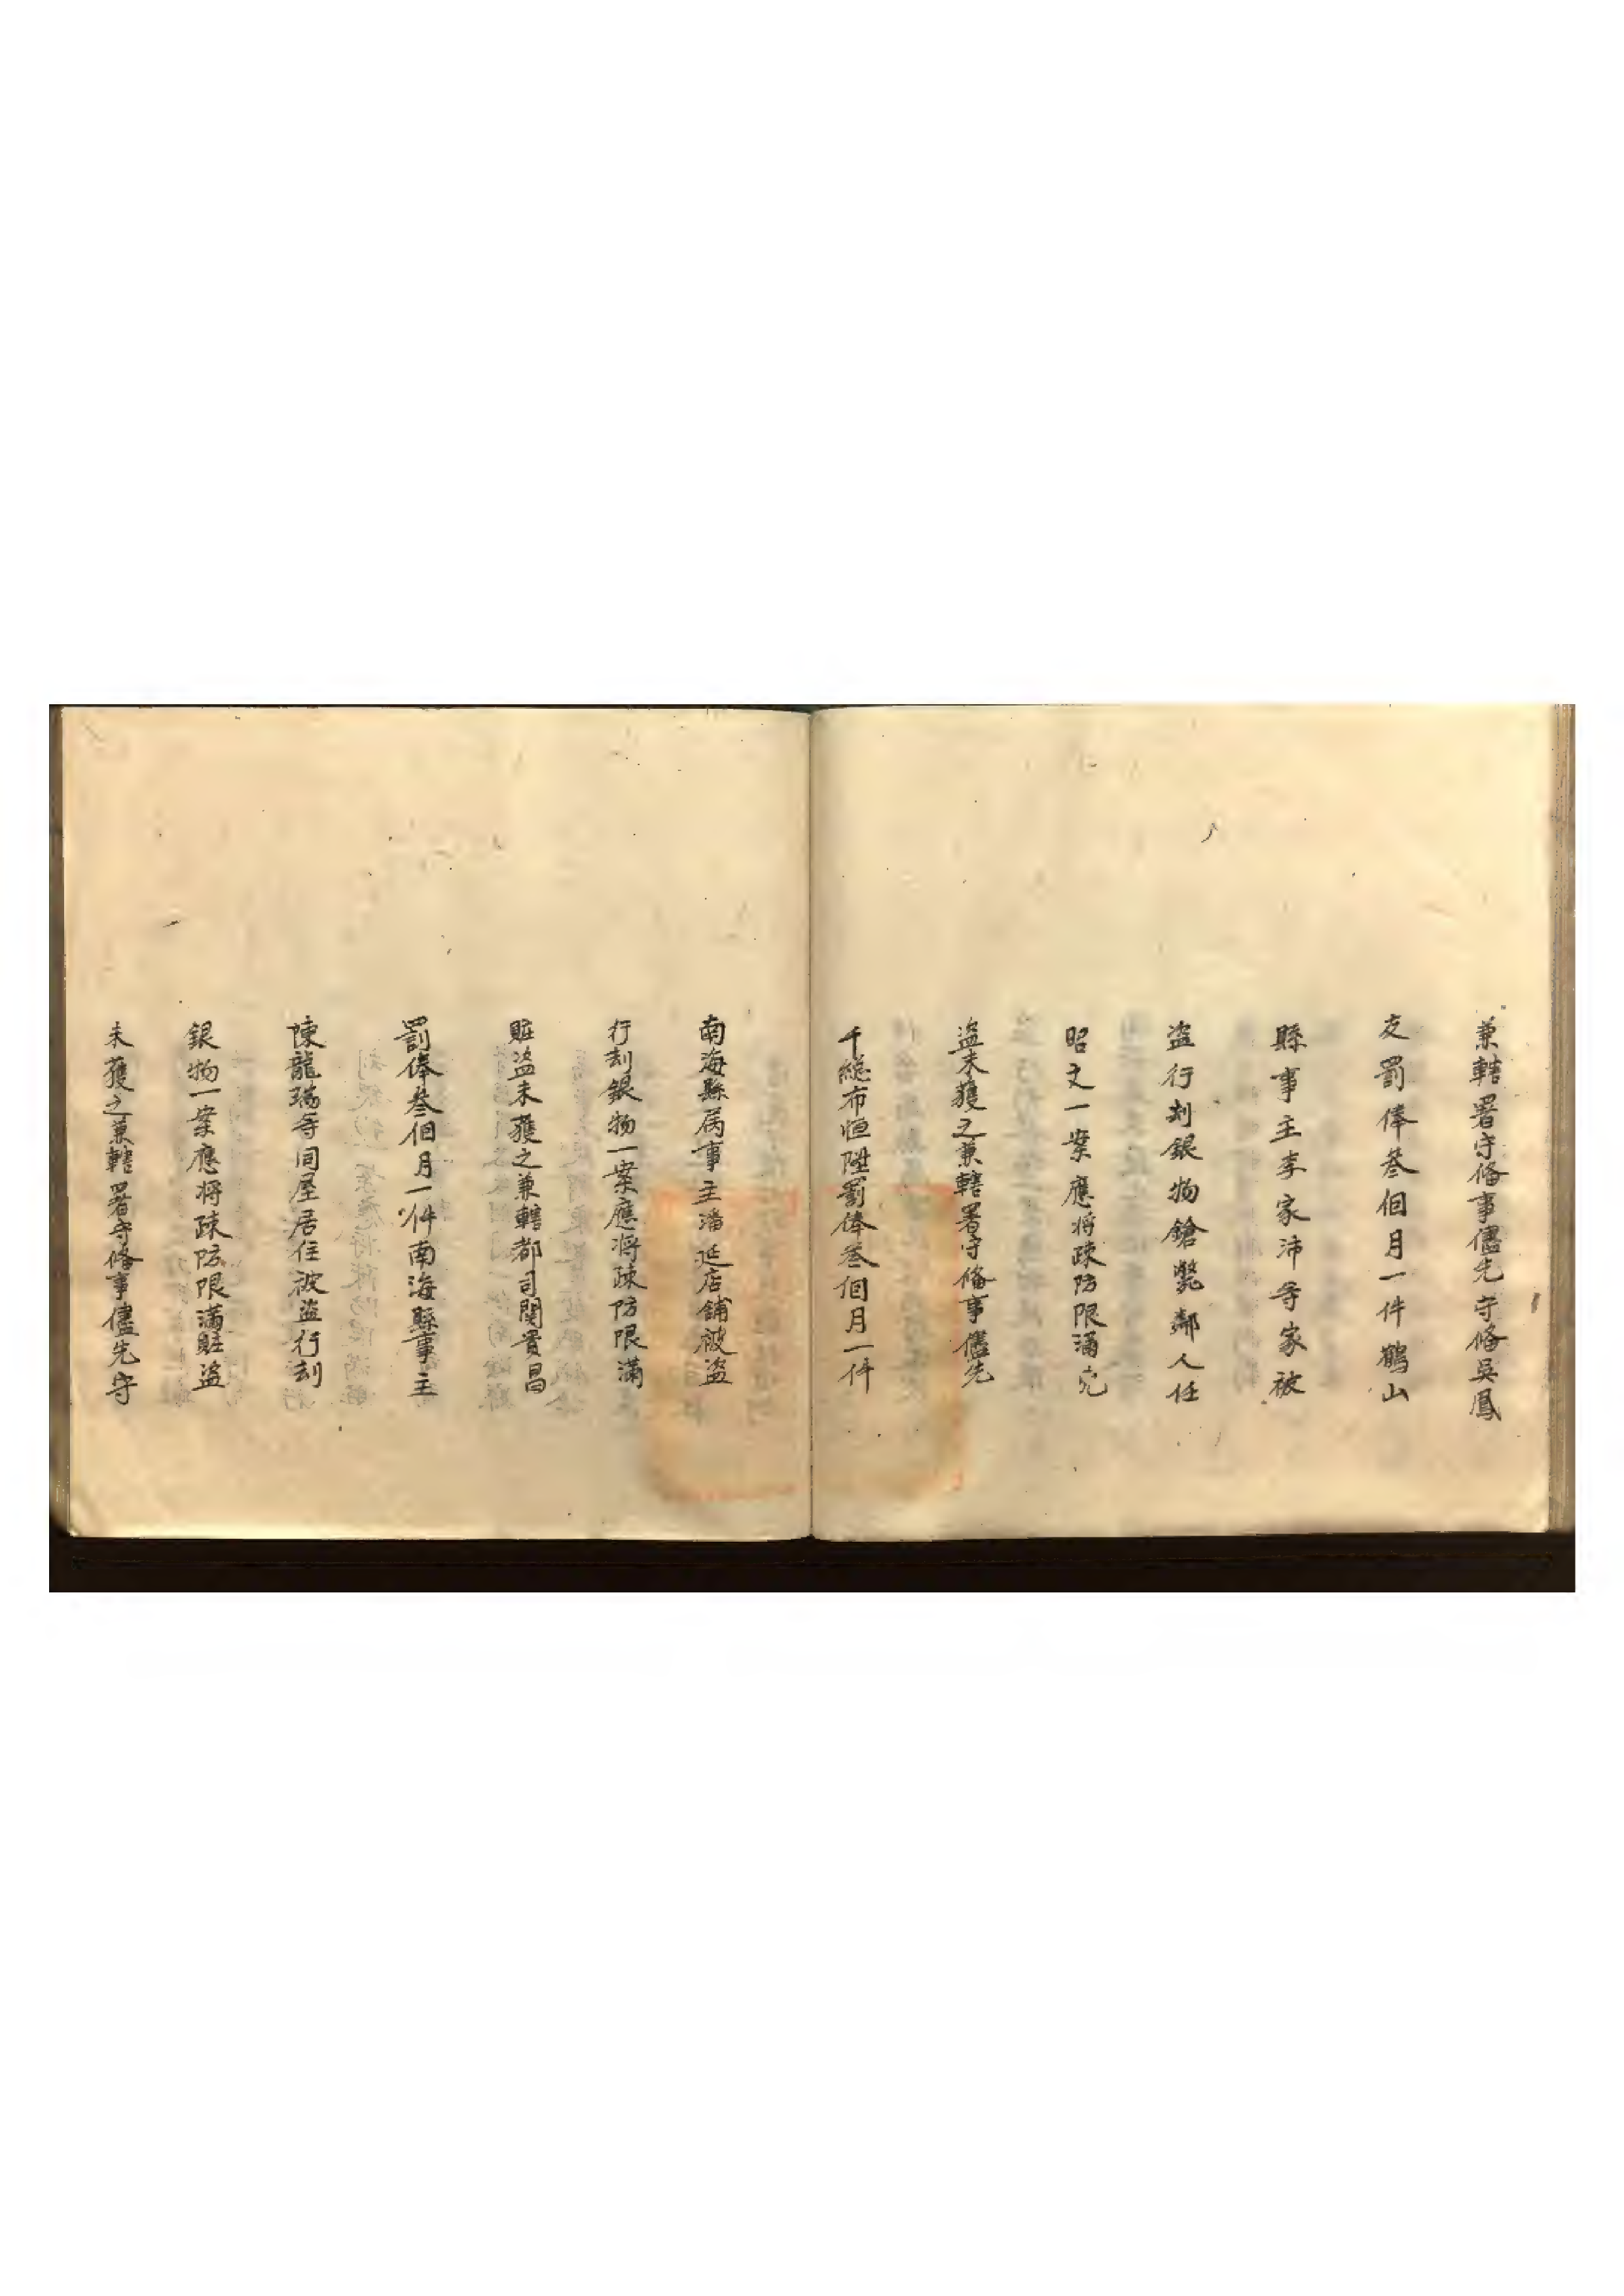 兼轄署守俻事儘先守俻吳鳳
友罰俸叁個月一件鶴山
縣事主李家沛等家被
盜行刼銀物鎗斃鄰人任
昭文一案應将疎防限滿兇
盜未獲之兼轄署守俻事儘先
千総布恒陞罰俸叁個月一件
南海縣属事主潘延店舖被盜
行刼銀物一案應将疎防限滿
賍盜未獲之兼轄都司関貴昌
罰俸叁個月一件南海縣事主
陳龍瑞等同屋居住被盜行刼
銀物一案應将疎防限滿賍盜
未獲之兼轄署守俻事儘先守